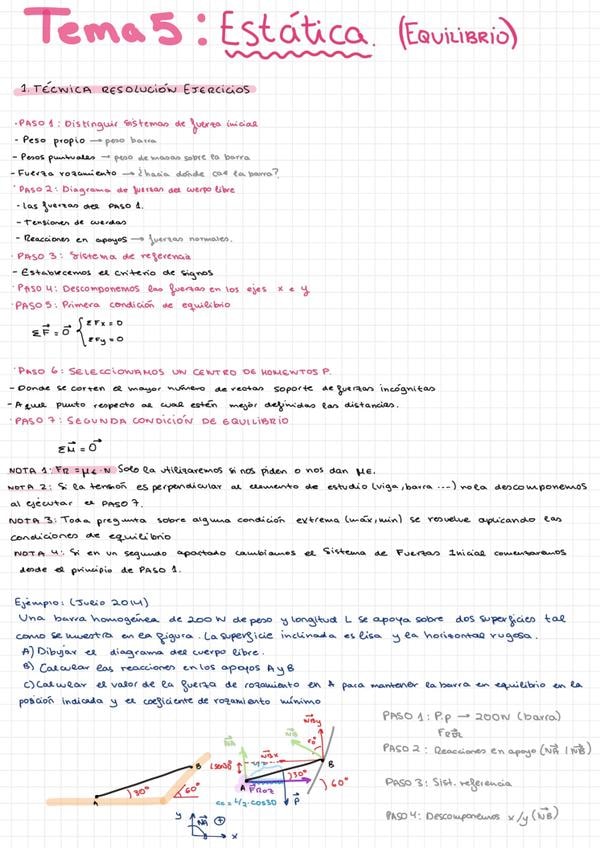 Tema 5: Estática. (EQUILIBRIO)
1. TÉCNICA RESOLUCIÓN EJERCICIOS
· PASO 1: Distinguir sistemas de fuerza inicial
- Peso propio → peso barra
- Pesos puntuales → peso de masas sobre la barra
- Fuerza rozamiento → ¿hacia dónde cae la barra?
· PASO 2: Diagrama de fuerzas del cuerpo libre
- Las fuerzas del PASO 1.
- Tensiones de cuerdas
- Reacciones en apoyos → fuerzas normales.
· PASO 3: Sistema de referencia
- Establecemos el criterio de signos
· PASO 4: Descomponemos las fuerzas en los ejes x e y
· PASO 5: Primera condición de equilibrio
ΣF⃗ = 0⃗ { ΣFx = 0
ΣFy = 0
· PASO 6: SELECCIONAMOS UN CENTRO DE MOMENTOS P.
- Donde se corten el mayor número de rectas soporte de fuerzas incógnitas
- Aquel punto respecto al cual estén mejor definidas las distancias.
· PASO 7: SEGUNDA CONDICIÓN DE EQUILIBRIO
ΣM⃗ = 0⃗
NOTA 1: FR = μe · N Solo la utilizaremos si nos piden o nos dan μe.
NOTA 2: Si la tensión es perpendicular al elemento de estudio (viga, barra ...) no la descomponemos
al ejecutar el PASO 7.
NOTA 3: Toda pregunta sobre alguna condición extrema (máx, min) se resuelve aplicando las
condiciones de equilibrio
NOTA 4: Si en un segundo apartado cambiamos el Sistema de Fuerzas Inicial comenzaremos
desde el principio de PASO 1.
Ejemplo: (Julio 2014)
Una barra homogénea de 200 N de peso y longitud L se apoya sobre dos superficies tal
como se muestra en la figura. La superficie inclinada es lisa y la horizontal rugosa.
A) Dibujar el diagrama del cuerpo libre.
B) Calcular las reacciones en los apoyos A y B
C) Calcular el valor de la fuerza de rozamiento en A para mantener la barra en equilibrio en la
posición indicada y el coeficiente de rozamiento mínimo
PASO 1: P.p → 200N (barra)
Froz
PASO 2: Reacciones en apoyo (N⃗A i N⃗B)
PASO 3: Sist. referencia
PASO 4: Descomponemos x/y (N⃗B)
A
30°
B
60°
N⃗A
N⃗B
N⃗By
N⃗Bx
B
30°
60°
A
F⃗roz
P⃗
cc = L/2 · cos30
y
x